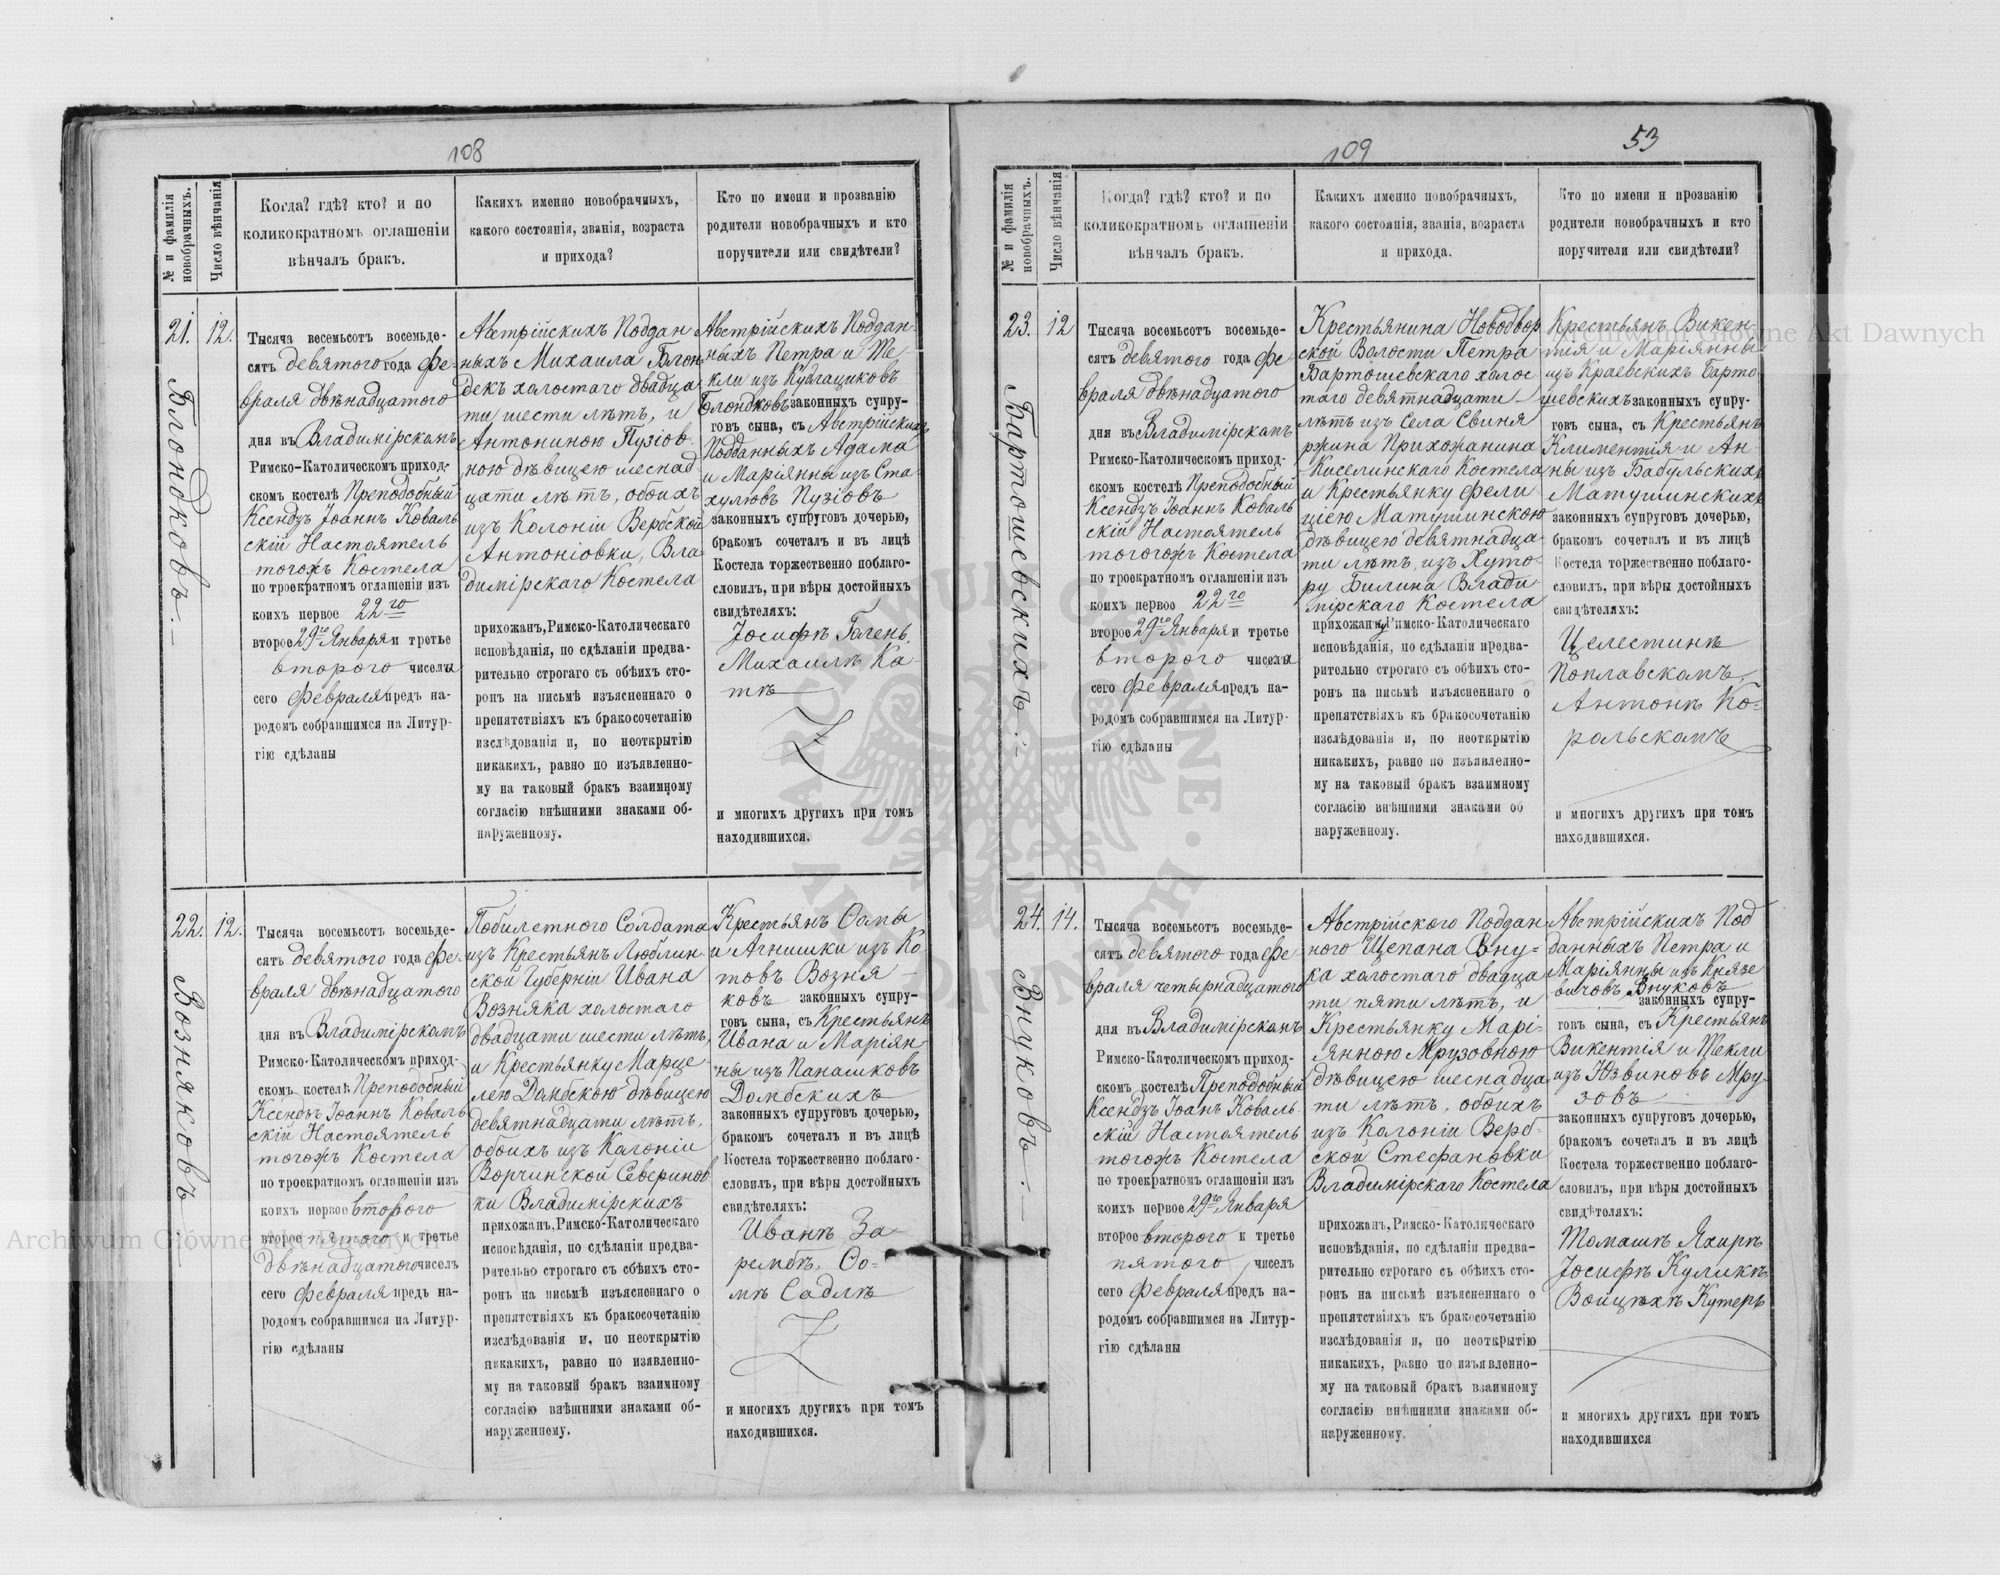 108
№ и фамилія новобрачныхъ.
Число вѣнчанія
Когда? гдѣ? кто? и по
коликократномъ оглашеніи
вѣнчалъ бракъ.
Какихъ именно новобрачныхъ,
какого состоянія, званія, возраста
и прихода?
Кто по имени и прозванію
родители новобрачныхъ и кто
поручители или свидѣтели?
21.
Блондковъ.
12.
Тысяча весемьсотъ восемьде-
сятъ девятого года Фе-
враля двѣнадцатого
дня въ Владимірскомъ
Римско-Католическомъ приход-
скомъ костелѣ Преподобный
Ксендзъ Іоаннъ Коваль
скій Настоятель
тогожъ Костела
по троекратномъ оглашеніи изъ
коихъ первое 22го
второе 29го Января и третье
второго чиселъ
сего Февраля предъ на-
родомъ собравшимся на Литур-
гію сдѣланы
Австрійскихъ Поддан
ныхъ Михаила Блон
декъ холостаго двадца
ти шести лѣтъ, и
Антониною Пузіов
ною дѣвицею меснад
цати лѣтъ, обоихъ
изъ Колоніи Вербской
Антоніовки, Вла
димірскаго Костела
прихожанъ, Римско-Католическаго
исповѣданія, по сдѣланіи предва-
рительно строгаго съ обѣихъ сто-
ронъ на письмѣ изъясненнаго о
препятствіяхъ къ бракосочетанію
изслѣдованія и, по неоткрытію
никакихъ, равно по изъявленно-
му на таковый бракъ взаимному
согласію внѣшними знаками об-
наруженному.
Австрійскихъ Поддан-
ныхъ Петра и Те
кли изъ Кудлациковъ
Блондковъ законныхъ супру-
говъ сына, съ Австрійскихъ
Подданныхъ Адама
и Маріянны изъ Ста
хулювъ Пузіовъ
законныхъ супруговъ дочерью,
бракомъ сочеталъ и въ лицѣ
Костела торжественно поблаго-
словилъ, при вѣры достойныхъ
свидѣтеляхъ:
Іосифѣ Голень,
Михаилѣ Ка-
тѣ
и многихъ другихъ при томъ
находившихся.
22.
Возняковъ
12.
Тысяча восемьсотъ восемьде-
сятъ девятого года Фе-
враля двѣнадцатого
дня въ Владимірскомъ
Римско-Католическомъ приход-
скомъ костелѣ Преподобный
Ксендзъ Іоаннъ Коваль
скій Настоятель
тогожъ Костела
по троекратномъ оглашеніи изъ
коихъ первое второго
второе пятого и третье
двѣнадцатого чиселъ
сего Февраля предъ на-
родомъ собравшимся на Литур-
гію сдѣланы
Побилетного Солдата
изъ Крестьянъ Люблин
ской Губерніи Ивана
Возняка холостаго
двадцати шести лѣтъ,
и Крестьянку Марце-
лею Домбскою дѣвицею
девятнадцати лѣтъ,
обоихъ изъ Колоніи
Ворчинской Северинов
ки Владимірскихъ
прихожанъ, Римско-Католическаго
исповѣданія, по сдѣланіи предва-
рительно строгаго съ сбѣихъ сто-
ронъ на письмѣ изъясненнаго о
препятствіяхъ къ бракосочетанію
изслѣдованія и, по неоткрытію
никакихъ, равно по изявленно-
му на таковый бракъ взаимному
согласію внѣшними знаками об-
наруженному.
Крестьянъ Ѳомы
и Агнишки изъ Ко
товъ Возня
ковъ законныхъ супру-
говъ сына, съ Крестьянъ
Ивана и Маріян-
ны изъ Панашковъ
Домбскихъ
законныхъ супруговъ дочерью,
бракомъ сочеталъ и въ лицѣ
Костела торжественно поблаго-
словилъ, при вѣры достойныхъ
свидѣтеляхъ:
Иванѣ За-
рембѣ, Ѳо-
мѣ Садлѣ
и многихъ другихъ при томъ
находившихся.
109
53
№ и фамилія новобрачныхъ.
Число вѣнчанія
Когда? гдѣ? кто? и по
коликократномъ оглашеніи
вѣнчалъ бракъ.
Какихъ именно новобрачныхъ,
какого состоянія, званія, возраста
и прихода.
Кто по имени и прозванію
родители новобрачныхъ и кто
поручители или свидѣтели?
23.
Бартошевскихъ
12
Тысяча восемьсотъ восемьде-
сятъ девятого года Фе
враля двѣнадцатого
дня въ Владимірскомъ
Римско-Католическомъ приход-
скомъ костелѣ Преподобный
Ксендзъ Іоаннъ Коваль
скій Настоятель
тогогожъ Костела
по троекратномъ оглашеніи изъ
коихъ первое 22го
второе 29го Января и третье
второго чиселъ
сего Февраля предъ на-
родомъ собравшимся на Литур-
гію сдѣланы
Крестьянина Новодвор
ской Волости Петра
Бартошевскаго холос
таго девятнадцати
лѣтъ изъ Села Свиня
ржина Прихожанина
Киселинскаго Костела
и Крестьянку Фели
ціею Матушинскою
дѣвицею девятнадца
ти лѣтъ, изъ Хуто-
ру Билина Влади-
мірскаго Костела
прихожанъ, Римско-Католическаго
исповѣданія, по сдѣланіи предва-
рительно строгаго съ обѣихъ сто-
ронъ на письмѣ изъясненнаго о
препятствіяхъ къ бракосочетанію
изслѣдованія и, по неоткрытію
никакихъ, равно по изъявленно-
му на таковый бракъ взаимному
согласію внѣшними знаками об
наруженному.
Крестьянъ Викен-
тія и Маріянны
изъ Краевскихъ Барто
шевскихъ законныхъ супру-
говъ сына, съ Крестьянъ
Климентія и Ан
ны изъ Бабульскихъ
Матушинскихъ
законныхъ супруговъ дочерью,
бракомъ сочеталъ и въ лицѣ
Костела торжественно поблаго-
словилъ, при вѣры достойныхъ
свидѣтеляхъ:
Целестинѣ
Поплавскомъ,
Антонѣ Ко-
рольскомъ
и многихъ другихъ при томъ
находившихся.
24.
Внуковъ.
14.
Тысяча восемьсотъ восемьде-
сятъ девятого года Фе
враля четырнадцатого
дня въ Владимірскомъ
Римско-Католическомъ приход-
скомъ костелѣ Преподобный
Ксендзъ Іоанъ Коваль-
скій Настоятель
тогожъ Костела
по троекратномъ оглашеніи изъ
коихъ первое 29го Января
второе второго и третье
пятого чиселъ
сего Февраля предъ на-
родомъ собравшимся на Литур-
гію сдѣланы
Австрійского Поддан
ного Щепана Вну-
ка холостаго двадца
ти пяти лѣтъ, и
Крестьянку Марі-
янною Мрузовною
дѣвицею шеснадца
ти лѣтъ, обоихъ
изъ Колоніи Верб-
ской Стефановки
Владимірскаго Костела
прихожанъ, Римско-Католическаго
исповѣданія, по сдѣланіи предва-
рительно строгаго съ обѣихъ сто-
ронъ на письмѣ изъясненнаго о
препятствіяхъ къ бракосочетанію
изслѣдованія и, по неоткрытію
никакихъ, равно по изъявленно-
му на таковый бракъ взаимному
согласію внѣшними знаками об-
наруженному.
Австрійскихъ Под
данныхъ Петра и
Маріянны изъ Князе
вичовъ Внуковъ
законныхъ супру-
говъ сына, съ Крестьянъ
Викентія и Текли
изъ Юзвиновъ Мру
зовъ
законныхъ супруговъ дочерью,
бракомъ сочеталъ и въ лицѣ
Костела торжественно поблаго-
словилъ, при вѣры достойныхъ
свидѣтеляхъ:
Томашѣ Яхирѣ
Іосифѣ Куликѣ
Войцѣхѣ Кутеръ
и многихъ другихъ при томъ
находившихся
Archiwum Główne Akt Dawnych
Archiwum Główne Akt Dawnych